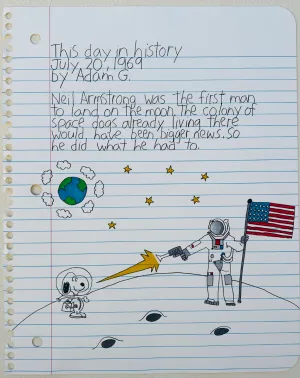 This day in history
July 20, 1969
by Adam G.
Neil Armstrong was the first man
to land on the moon. The colony of
space dogs already living there
would have been bigger news. So
he did what he had to.